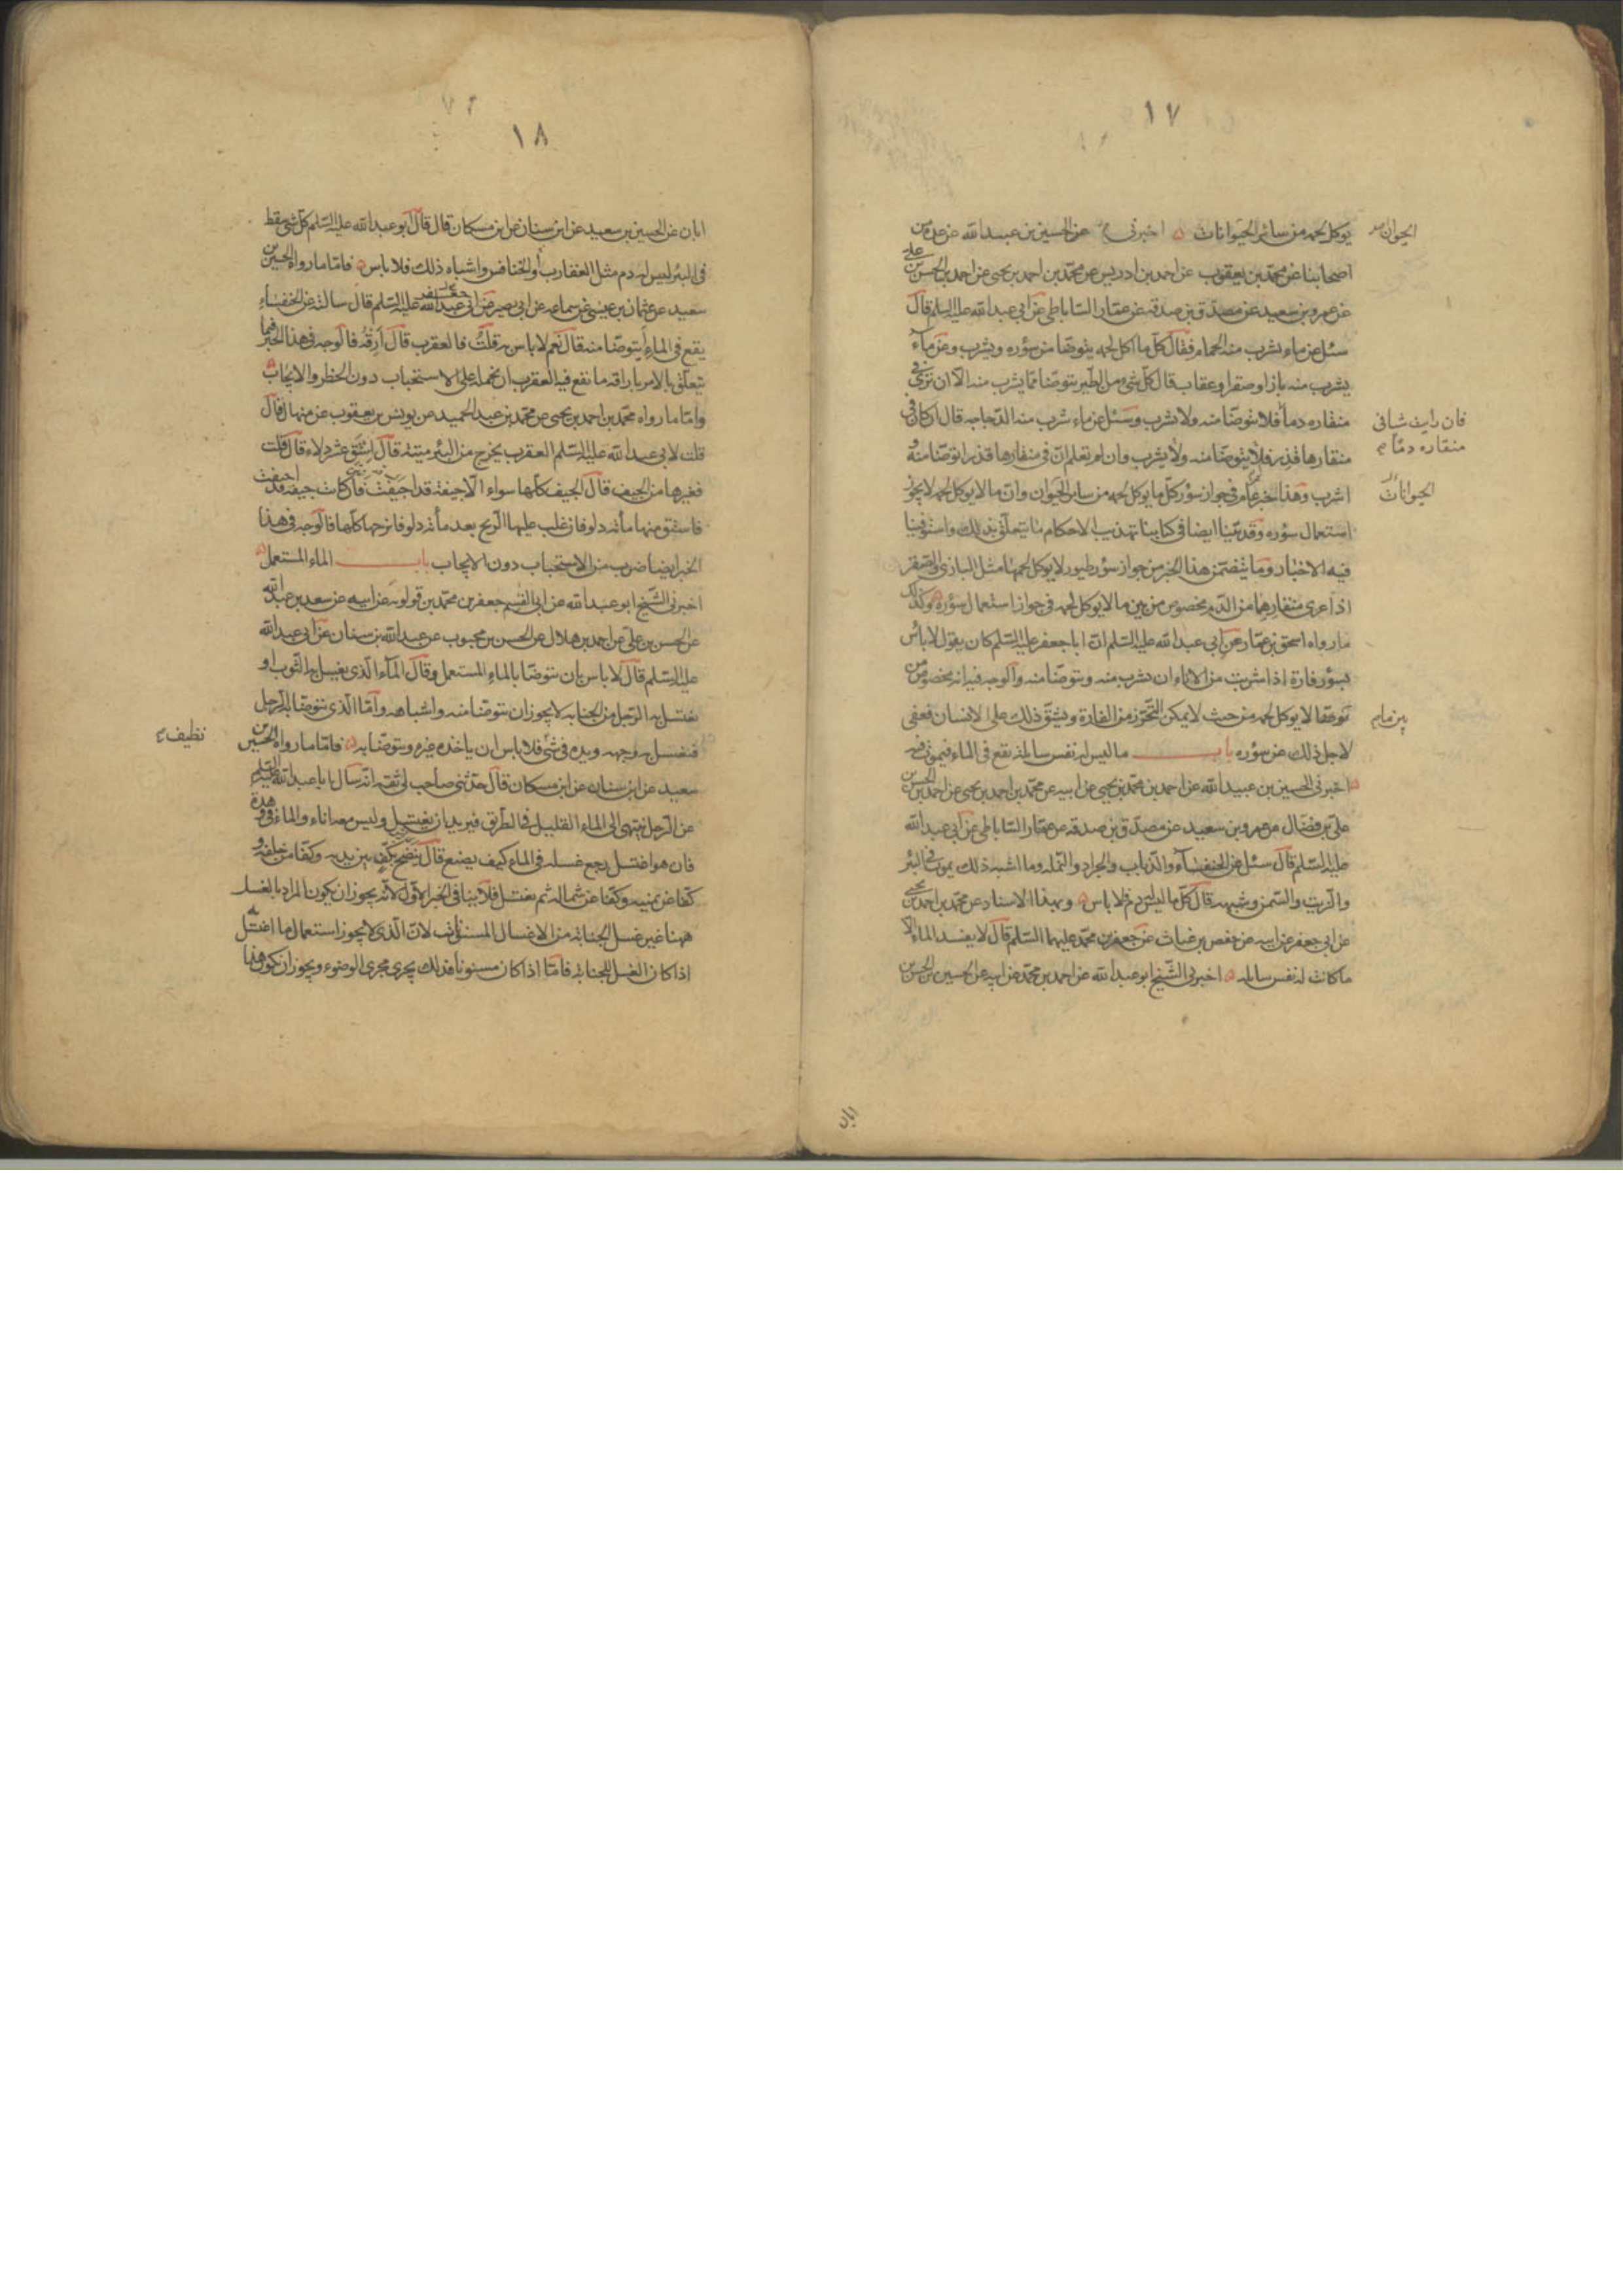 ١٧
يوكل لحمه من سائر الحيوانات اخبرني الحسين بن عبيد الله عن عدة من
الحيوان
اصحابنا عن محمد بن يعقوب عن احمد بن ادريس عن محمد بن احمد بن يحيى عن احمد بن الحسن بن علي
عن عمرو بن سعيد عن مصدق بن صدقه عن عمار الساباطي عن ابي عبد الله عليه السلم قال
سئل عن ماء يشرب منه الحمام فقال كل ما اكل لحمه يتوضا من سؤره ويشرب وعن ماء
يشرب منه باز او صقر او عقاب قال كل شئ من الطير يتوضا مما يشرب منه الا ان ترى في
منقاره دما فلا تتوضا منه ولا يشرب وسئل عن ماء شرب منه الدجاجه قال ان كان في
فان رايت شيا في
منقاره دما
منقارها قذر فلا يتوضا منه ولا يشرب وان لم تعلم ان في منقارها قذر اتوضا منه و
اشرب وهذا خبر عام في جواز سؤر كل ما يوكل لحمه من سائر الحيوان وان ما لا يوكل لحمه لا يجوز
الحيوانات
استعمال سؤره وقد بينا ايضا في كتابنا تهذيب الاحكام ما يتعلق بذلك واستوفينا
فيه الاخبار وما يتضمن هذا الخبر من جواز سؤر طيور لا يوكل لحمها مثل البازى والصقر
اذا عرى منقارها من الدم مخصوص من بين ما لا يوكل لحمه في جواز استعمال سؤره وكذلك
ما رواه اسحق بن عمار عن ابي عبد الله عليه السلم ان ابا جعفر عليه السلم كان يقول لا باس
بسؤر فارة اذا شربت من الاناء ان يشرب منه ويتوضا منه والوجه فيه انه مخصوص من
بين ما لا يوكل لحمه من حيث لا يمكن التحرز من الفارة ويشق ذلك على الانسان فعفي
بين ما
لاجل ذلك عن سؤره باب ما ليس له نفس سائلة يقع في الماء فيموت فيه
اخبرني الحسين بن عبيد الله عن احمد بن محمد بن يحيى عن ابيه عن محمد بن احمد بن يحيى عن احمد بن الحسن بن
علي بن فضال عن عمرو بن سعيد عن مصدق بن صدقه عن عمار الساباطي عن ابي عبد الله
عليه السلم قال سئل عن الخنفساء والذباب والجراد والنمله وما اشبه ذلك يموت في البئر
والزيت والسمن وشبهه قال كل ما ليس له دم فلا باس وبهذا الاسناد عن محمد بن احمد بن يحيى
عن ابي جعفر عن ابيه عن حفص بن غياث عن جعفر بن محمد عليهما السلم قال لا يفسد الماء الا
ما كانت له نفس سائله اخبرني الشيخ ابو عبد الله عن احمد بن محمد عن ابيه عن الحسين بن الحسن بن
ابان
١٨
ابان عن الحسين بن سعيد عن ابن سنان عن ابن مسكان قال قال ابو عبد الله عليه السلم كل شئ سقط
في البئر ليس له دم مثل العقارب والخنافس واشباه ذلك فلا باس فاما ما رواه الحسين بن
سعيد عن عثمان بن عيسى عن سماعه عن ابي بصير عن ابي عبد الله جعفر عليه السلم قال سالته عن الخنفساء
يقع في الماء أيتوضا منه قال نعم لا باس به قلت فالعقرب قال ارقه فالوجه في هذا الخبر فيما
يتعلق بالامر باراقه ما يقع فيه العقرب ان نحمله على الاستحباب دون الحظر والايجاب
واما ما رواه محمد بن احمد بن يحيى عن محمد بن عبد الحميد عن يونس بن يعقوب عن منهال قال
قلت لابي عبد الله عليه السلم العقرب يخرج من البئر ميتة قال استق عشر دلاء قال قلت
فغيرها من الجيف قال الجيف كلها سواء الا جيفة قد اجيفت فان كانت جيفة قد اجيفت
فاستق منها مائة دلو فان غلب عليها الريح بعد مائة دلو فانزحها كلها فالوجه في هذا
الخبر ايضا ضرب من الاستحباب دون الايجاب باب الماء المستعمل
اخبرني الشيخ ابو عبد الله عن ابي القسم جعفر بن محمد بن قولويه عن ابيه عن سعد بن عبد الله
عن الحسن بن علي عن احمد بن هلال عن الحسن بن محبوب عن عبد الله بن سنان عن ابي عبد الله
عليه السلم قال لا باس بان يتوضا بالماء المستعمل وقال الماء الذي يغسل به الثوب او
يغتسل به الرجل من الجنابه لا يجوز ان يتوضا منه واشباهه واما الذي يتوضا به الرجل
فيغسل به وجهه ويده في شئ فلا باس ان ياخذه غيره ويتوضا به فاما ما رواه الحسين بن
نظيف
سعيد عن ابن سنان عن ابن مسكان قال حدثني صاحب لي ثقه انه سال ابا عبد الله عليه السلم
عن الرجل ينتهى الى الماء القليل في الطريق فيريد ان يغتسل وليس معه اناء والماء في وهدة
فان هو اغتسل رجع غسله في الماء كيف يصنع قال ينضح بكف بين يديه وكفا من خلفه و
كفا عن يمينه وكفا عن شماله ثم يغتسل فلا ينافي الخبر الاول لانه يجوز ان يكون المراد بالغسل
ههنا غير غسل الجنابة من الاغسال المسنونات لان الذي لا يجوز استعمال ما اغتسل به
اذا كان الغسل للجنابة فاما اذا كان مسنونا فذلك يجرى مجرى الوضوء ويجوز ان يكون هذا